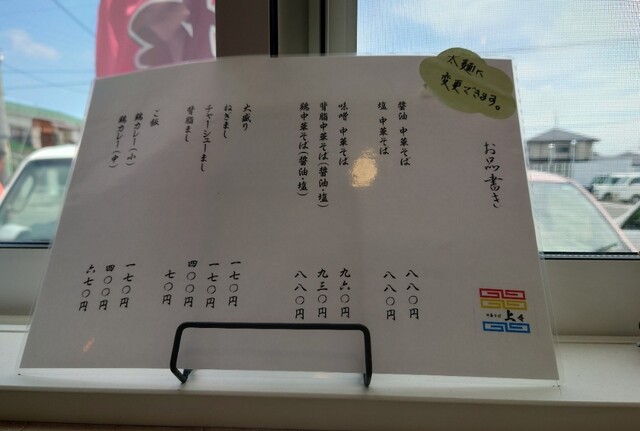 お品書き
太麺に
変更できます。
醤油 中華そば 八八〇円
塩 中華そば 八八〇円
味噌 中華そば 九六〇円
背脂中華そば(醤油・塩) 九三〇円
鶏中華そば(醤油・塩) 八八〇円
大盛り 一七〇円
ねぎまし 一七〇円
チャーシューまし 四〇〇円
背脂まし 七〇円
ご飯 一七〇円
鶏カレー(小) 四〇〇円
鶏カレー(中) 六七〇円